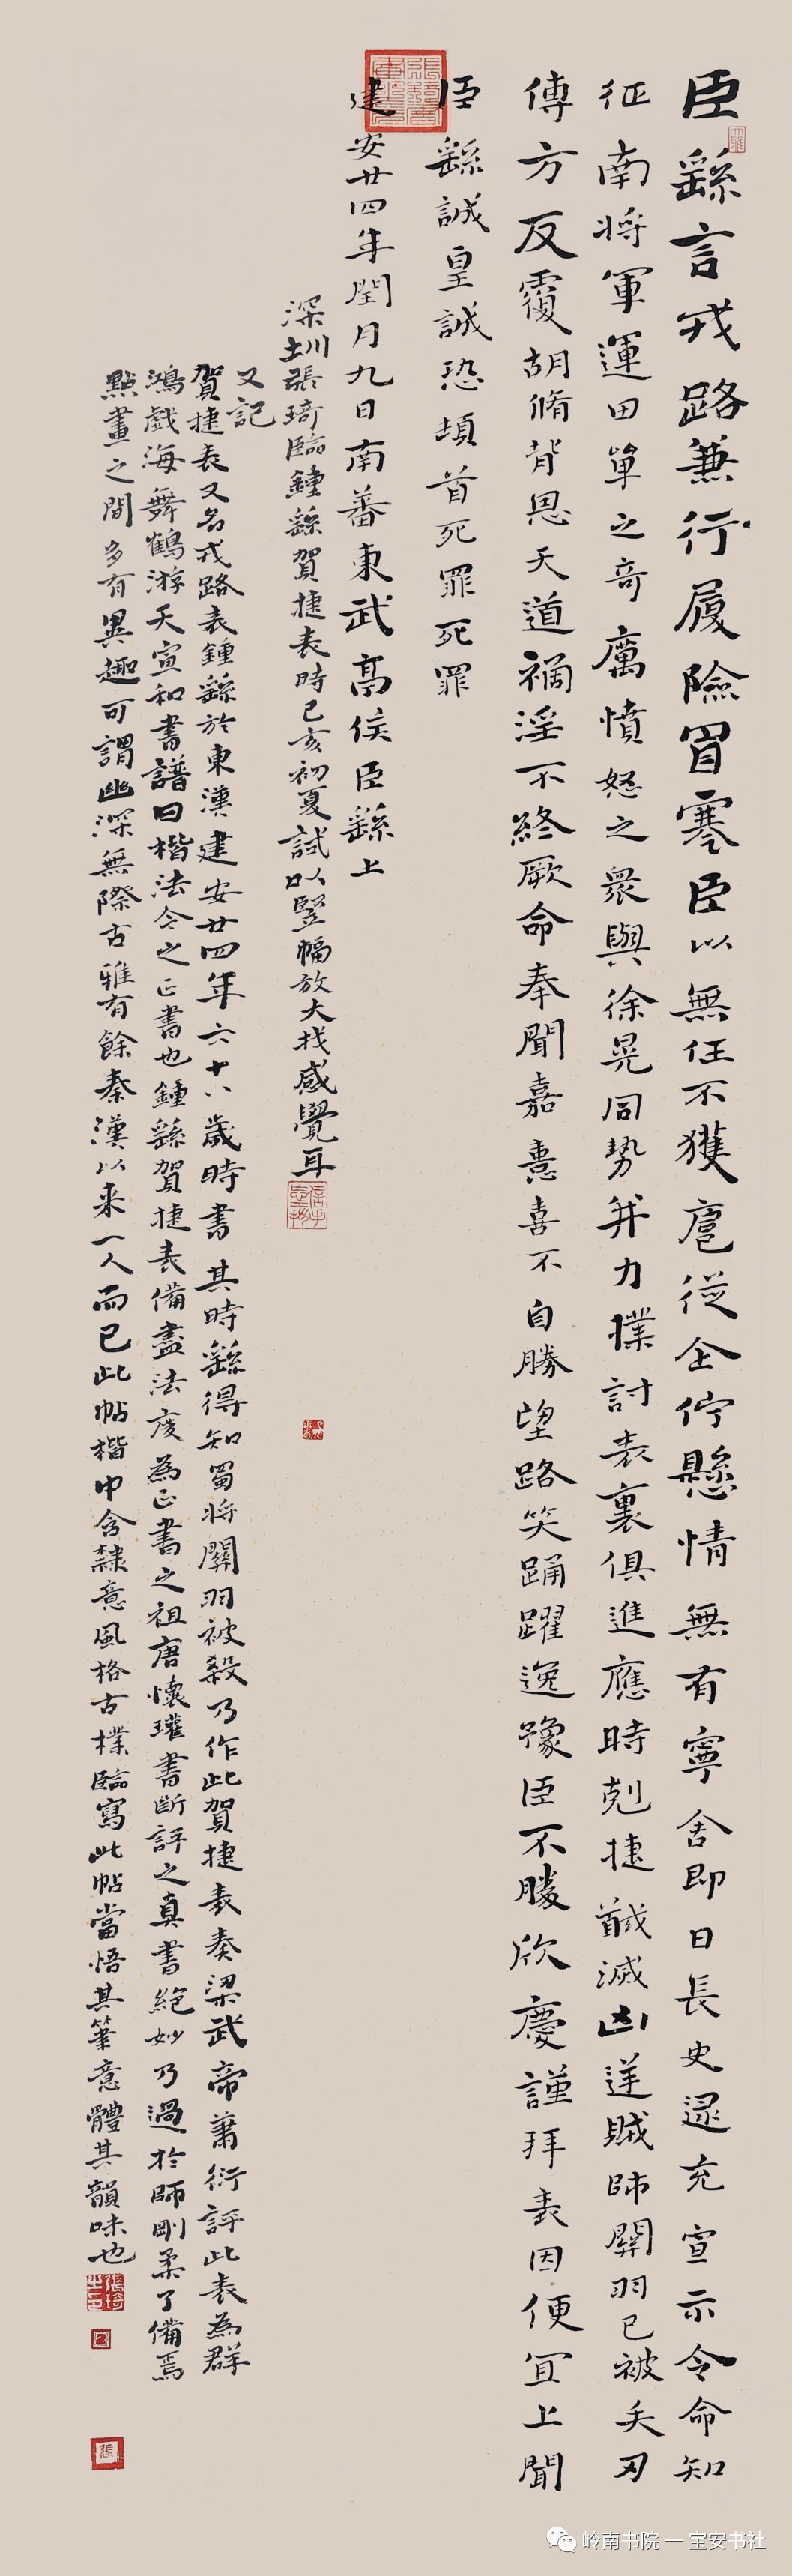 臣繇言戎路兼行履險冒寒臣以無任不獲扈從企佇懸情無有寧舍即日長史逯充宣示令命知
征南將軍運田單之奇厲憤怒之眾與徐晃同勢并力撲討表裏俱進應時剋捷馘滅凶逆賊帥關羽已被矢刃
傅方反覆胡脩背恩天道禍淫不終厥命奉聞嘉憙喜不自勝望路笑踊躍逸豫臣不勝欣慶謹拜表因便宜上聞
臣繇誠皇誠恐頓首死罪死罪
建安廿四年閏月九日南蕃東武亭侯臣繇上
深圳張琦臨鍾繇賀捷表時己亥初夏試以豎幅放大找感覺耳
又記
賀捷表又名戎路表鍾繇於東漢建安廿四年六十八歲時書其時繇得知蜀將關羽被殺乃作此賀捷表奏梁武帝蕭衍評此表為群
鴻戲海舞鶴游天宣和書譜曰楷法今之正書也鍾繇賀捷表備盡法度為正書之祖唐懷瓘書斷評之真書絕妙乃過於師剛柔了備焉
點畫之間多有異趣可謂幽深無際古雅有餘秦漢以来一人而已此帖楷中含隸意風格古樸臨寫此帖當悟其筆意體其韻味也
岭南书院 — 宝安书社